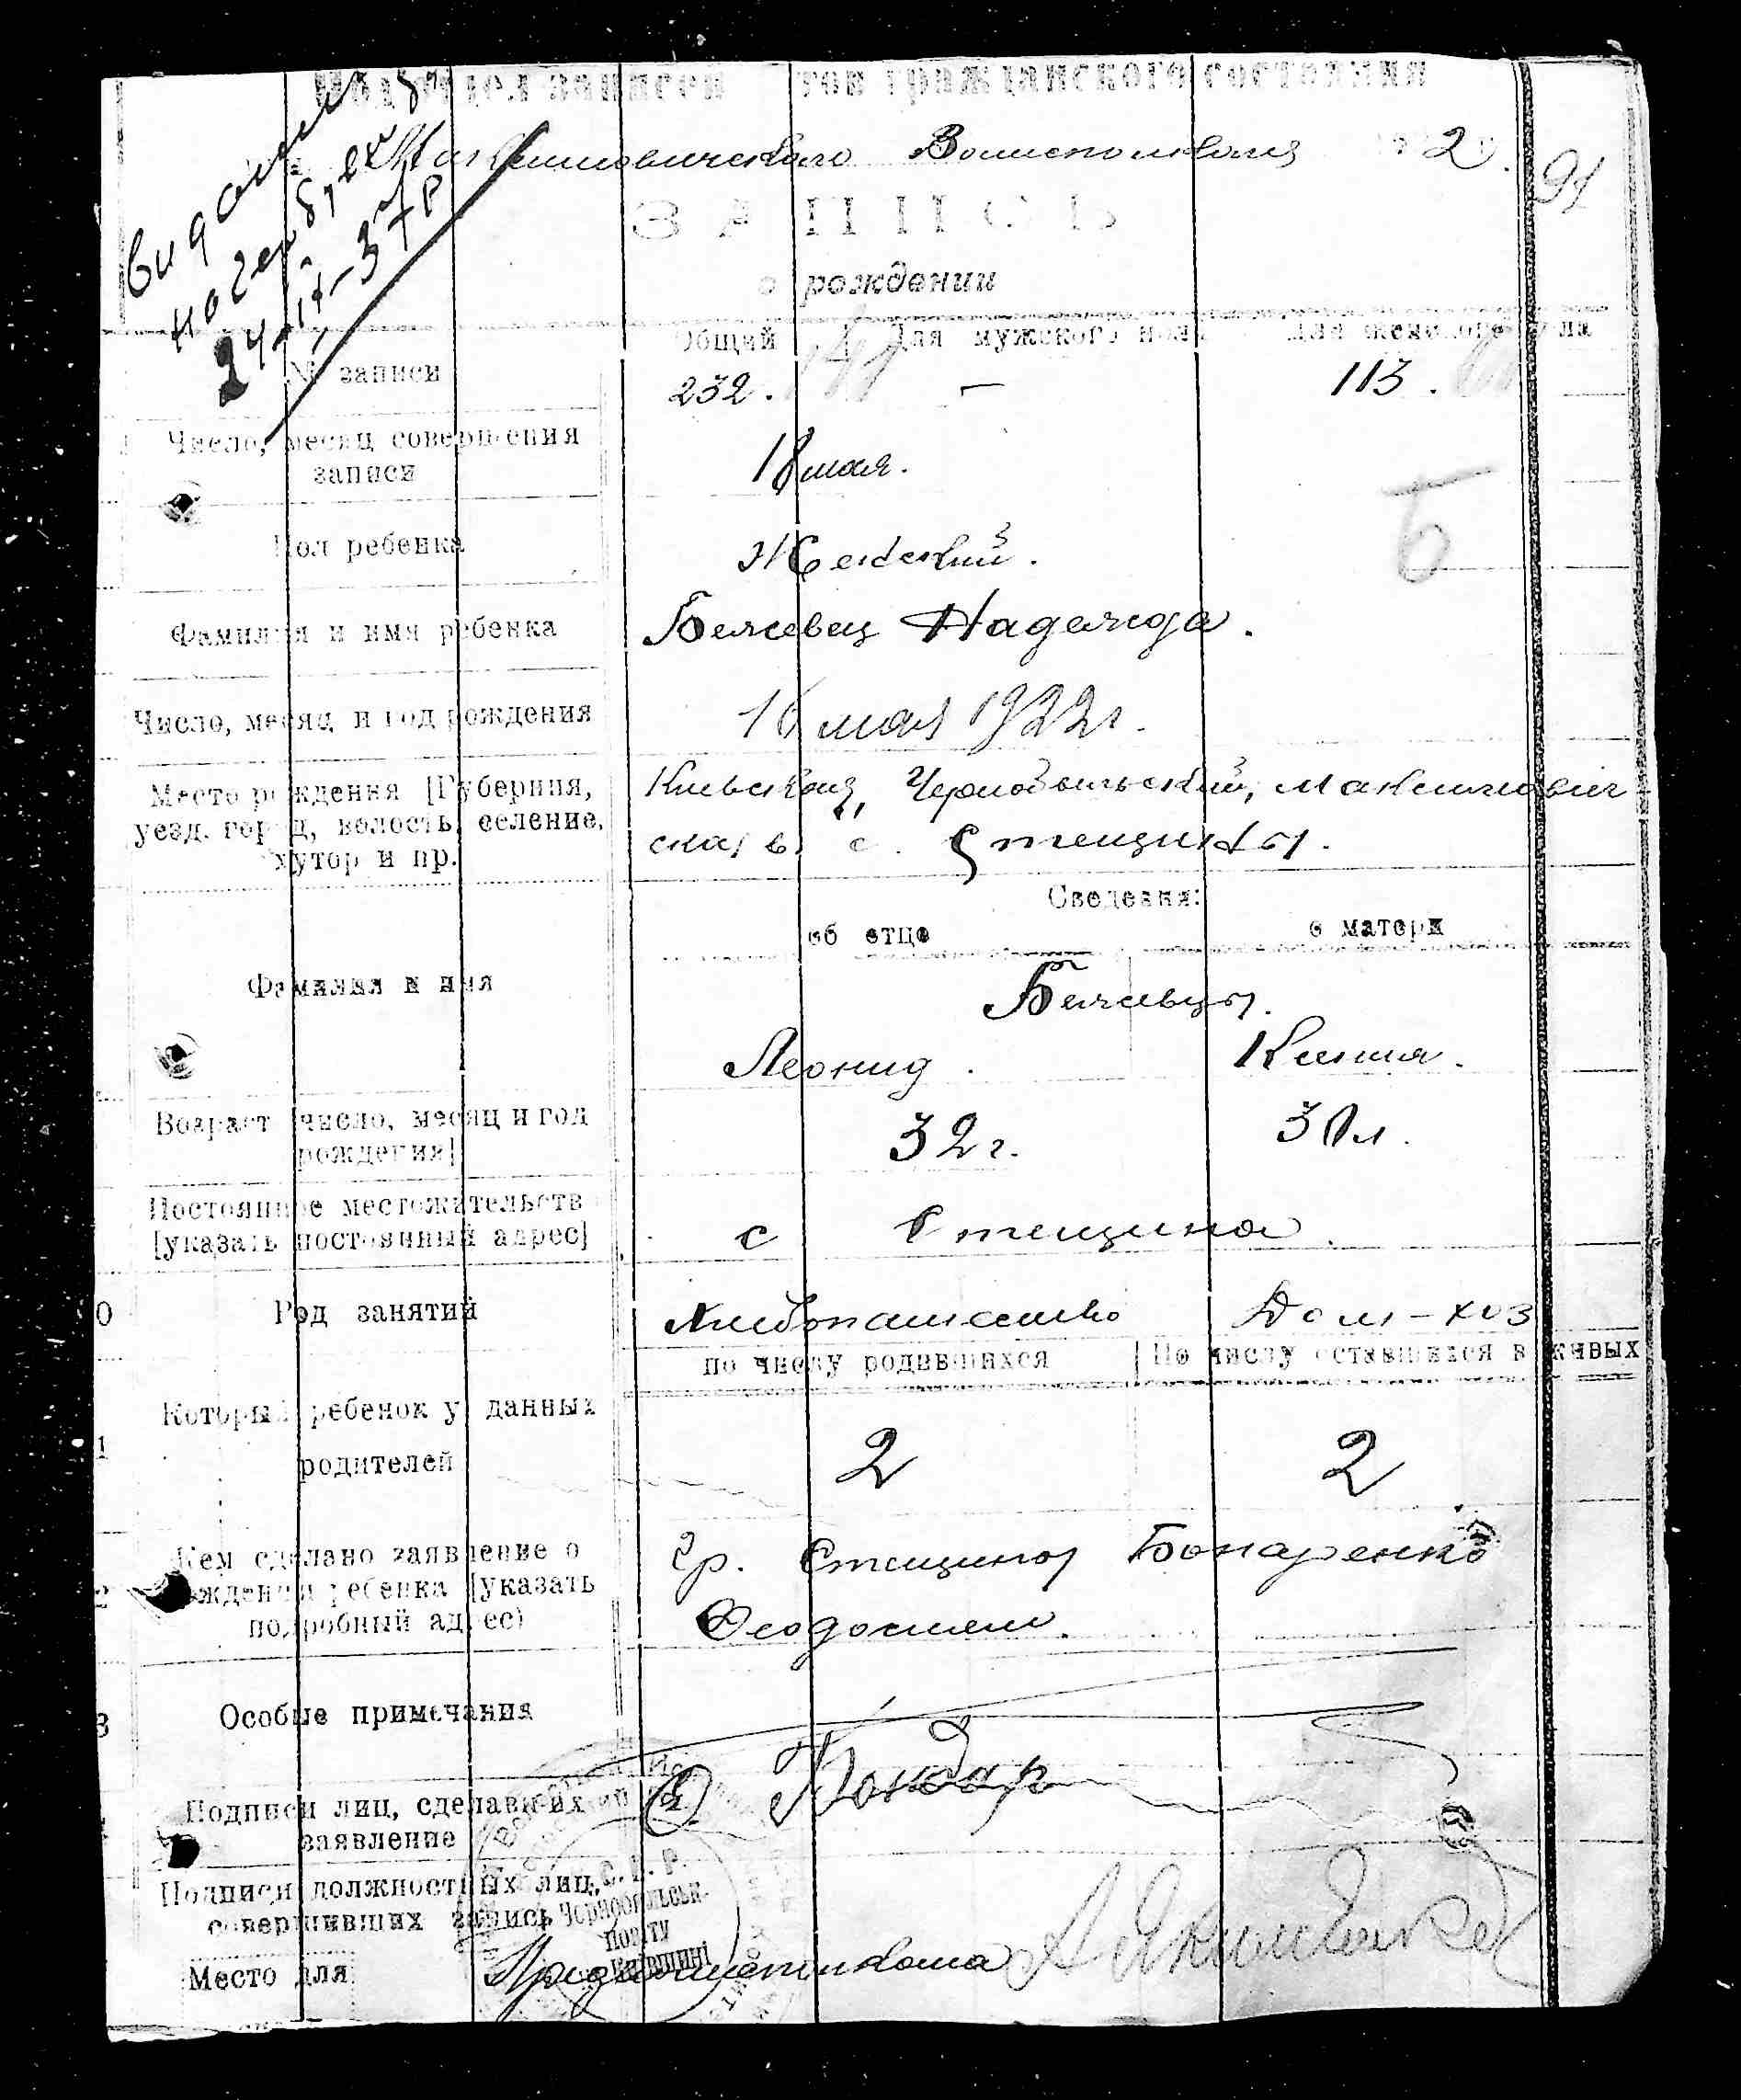 Подотдел записи актов гражданского состояния
Максимовического Волисполкома 2 91
ЗАПИСЬ
о рождении
24-IX-37 р
Общий Для мужского пола Для женского пола
№ записи 232. — 113.
Число, месяц совершения
записи 18 мая.
Пол ребенка Женский.
Б
Фамилия и имя ребенка Белжевец Надежда.
Число, месяц и год рождения 16 мая 1922 г.
Место рождения [Губерния, Киевская, Чернобыльский, Максимович
уезд, город, волость, селение, ская в. с. Стещины.
хутор и пр.
Сведения:
об отце о матери
Фамилия и имя
Белжевцы.
Леонид. Ксения.
Возраст [число, месяц и год
рождения] 32 г. 30 л.
Постоянное местожительств
[указать постоянный адрес] с Стещина
0 Род занятий Хлебопашество Дом-хоз
по числу родившихся По числу оставшихся в живых
Который ребенок у данных
1 родителей 2 2
Кем сделано заявление о гр. Стещины Бонаренко
2 рождении ребенка [указать
подробный адрес) Феодосием.
3 Особые примечания
Подписи лиц, сделавших
заявление Ф. Бондар
Подписи должностных лиц,
совершивших запись
Чорнобильськ.
повіту
на Київщині
Место для Предволисполкома